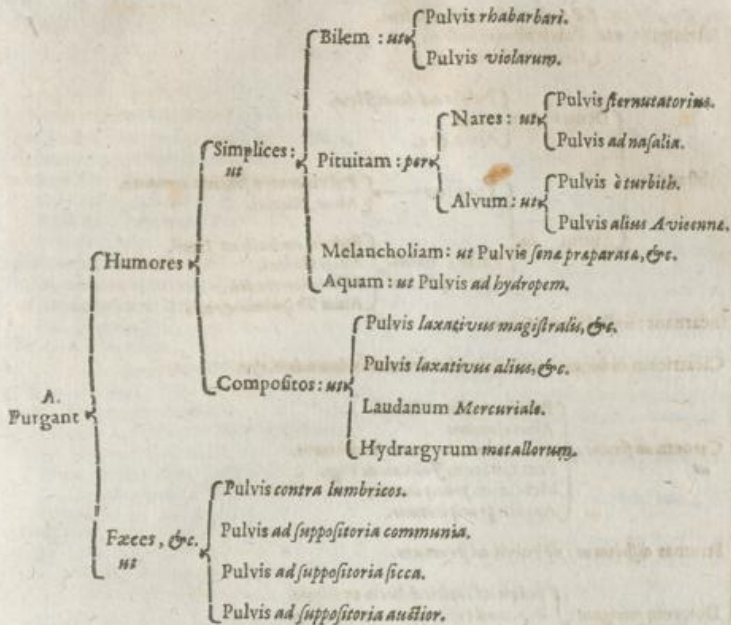 Bilem : ut
Pulvis rhabarbari.
Pulvis violarum.
Simplices :
ut
Pituitam : per
Nares : ut
Pulvis sternutatorius.
Pulvis ad nasalia.
Alvum : ut
Pulvis è turbith.
Pulvis alius Avicennæ.
Humores
Melancholiam : ut Pulvis senæ præparatæ, &c.
Aquam : ut Pulvis ad hydropem.
Compositos : ut
Pulvis laxativus magistralis, &c.
Pulvis laxativus alius, &c.
Laudanum Mercuriale.
Hydrargyrum metallorum.
A.
Purgant
Fæces, &c.
ut
Pulvis contra lumbricos.
Pulvis ad suppositoria communia.
Pulvis ad suppositoria sicca.
Pulvis ad suppositoria auctior.